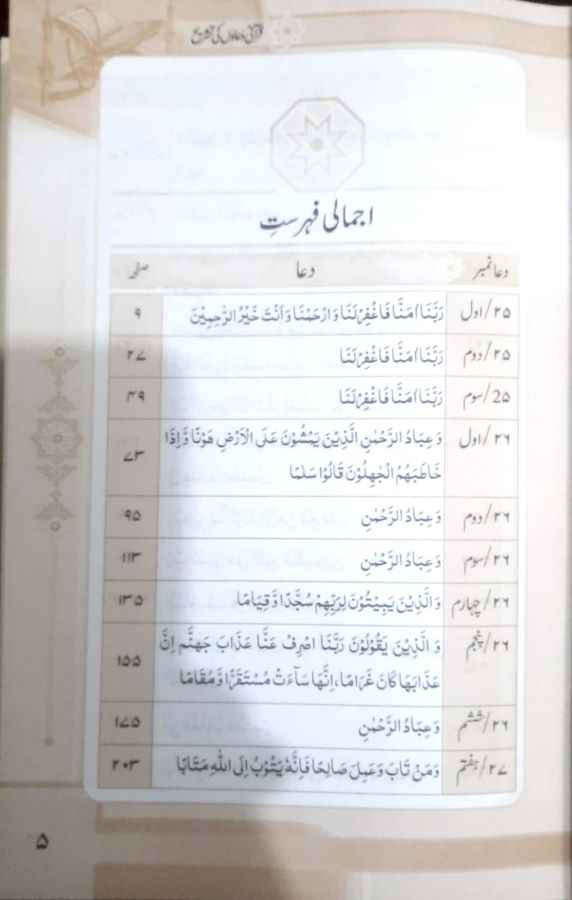 قرآنی دعاؤں کی تشریح
اجمالی فہرست
دعا نمبر دعا صفحہ
۲۵/اول رَبَّنَا اٰمَنَّا فَاغْفِرْ لَنَا وَارْحَمْنَا وَاَنْتَ خَيْرُ الرّٰحِمِيْنَ ۹
۲۵/دوم رَبَّنَا اٰمَنَّا فَاغْفِرْ لَنَا ۲۷
25/سوم رَبَّنَا اٰمَنَّا فَاغْفِرْ لَنَا ۴۹
۲۶/اول وَعِبَادُ الرَّحْمٰنِ الَّذِيْنَ يَمْشُوْنَ عَلَى الْاَرْضِ هَوْنًا وَّاِذَا
خَاطَبَهُمُ الْجٰهِلُوْنَ قَالُوْا سَلٰمًا ۷۳
۲۶/دوم وَعِبَادُ الرَّحْمٰنِ ۹۵
۲۶/سوم وَعِبَادُ الرَّحْمٰنِ ۱۱۳
۲۶/چہارم وَالَّذِيْنَ يَبِيْتُوْنَ لِرَبِّهِمْ سُجَّدًا وَّقِيَامًا ۱۳۵
۲۶/پنجم وَالَّذِيْنَ يَقُوْلُوْنَ رَبَّنَا اصْرِفْ عَنَّا عَذَابَ جَهَنَّمَ اِنَّ
عَذَابَهَا كَانَ غَرَامًا، اِنَّهَا سَآءَتْ مُسْتَقَرًّا وَّمُقَامًا ۱۵۵
۲۶/ششم وَعِبَادُ الرَّحْمٰنِ ۱۷۵
۲۷/ہفتم وَمَنْ تَابَ وَعَمِلَ صَالِحًا فَاِنَّهٗ يَتُوْبُ اِلَى اللّٰهِ مَتَابًا ۲۰۳
۵